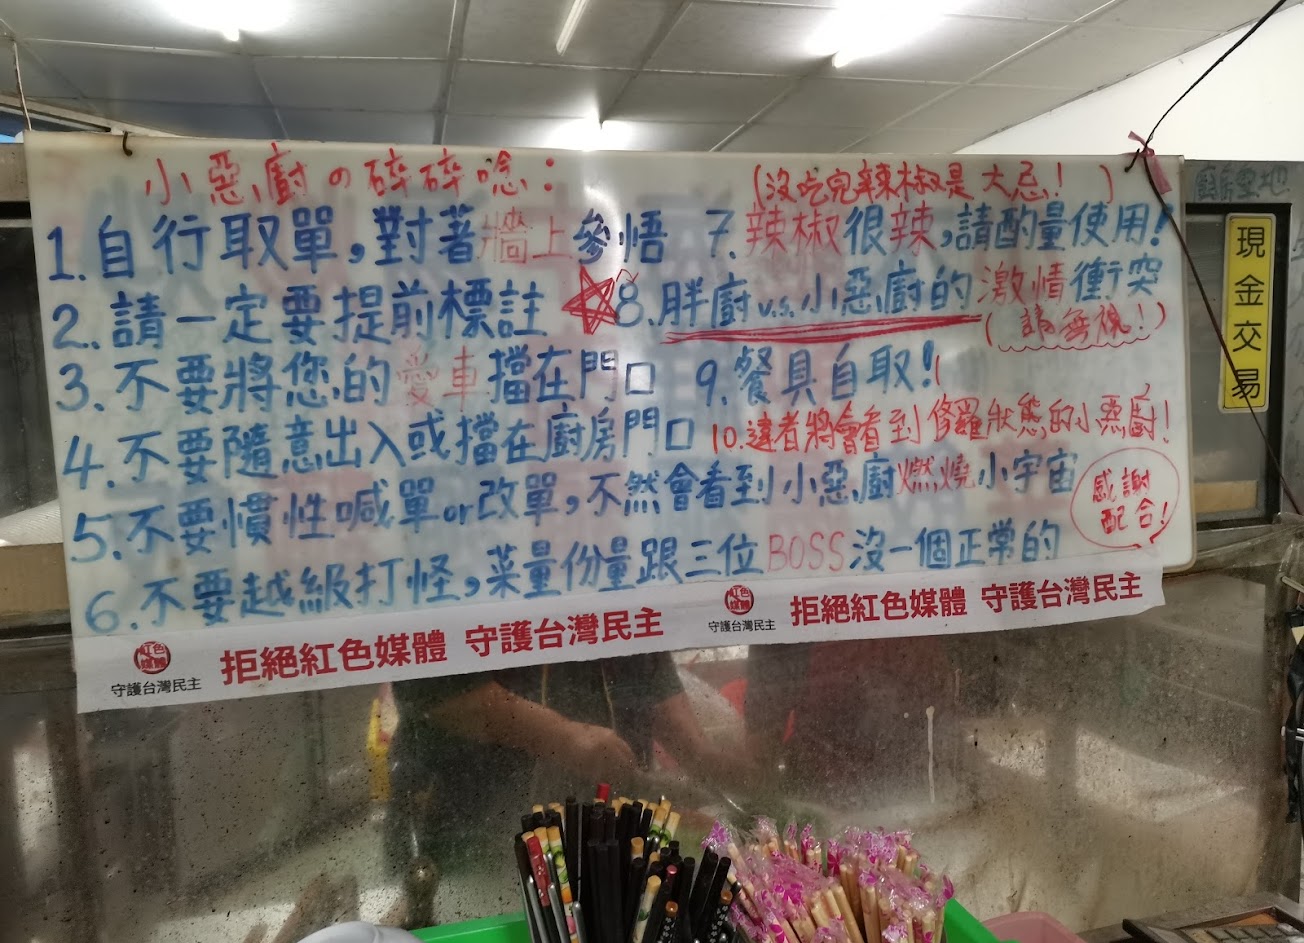 小惡廚の碎碎唸：
1.自行取單，對著牆上參悟
2.請一定要提前標註
3.不要將您的愛車擋在門口
4.不要隨意出入或擋在廚房門口
5.不要慣性喊單or改單，不然會看到小惡廚燃燒小宇宙
6.不要越級打怪，菜量份量跟三位BOSS沒一個正常的
(沒吃完辣椒是大忌！)
7.辣椒很辣，請酌量使用！
8.胖廚v.s.小惡廚的激情衝突
(請無視！)
9.餐具自取！
10.違者將會看到修羅狀態的小惡廚！
感謝
配合！
紅色
媒體
守護台灣民主
拒絕紅色媒體 守護台灣民主
紅色
媒體
守護台灣民主
拒絕紅色媒體 守護台灣民主
現金交易